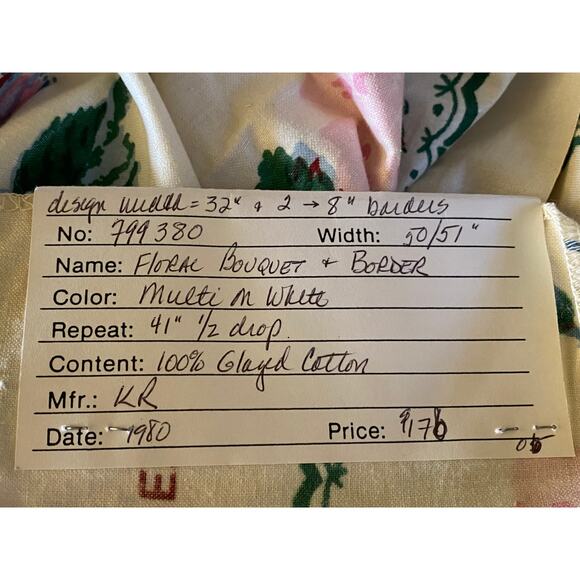 design width = 32" + 2 → 8" borders
No: 799380 Width: 50/51"
Name: FLORAL BOUQUET + BORDER
Color: Multi on White
Repeat: 41" 1/2 drop
Content: 100% Glazed Cotton
Mfr.: KR
Date: 1980 Price: $176
E